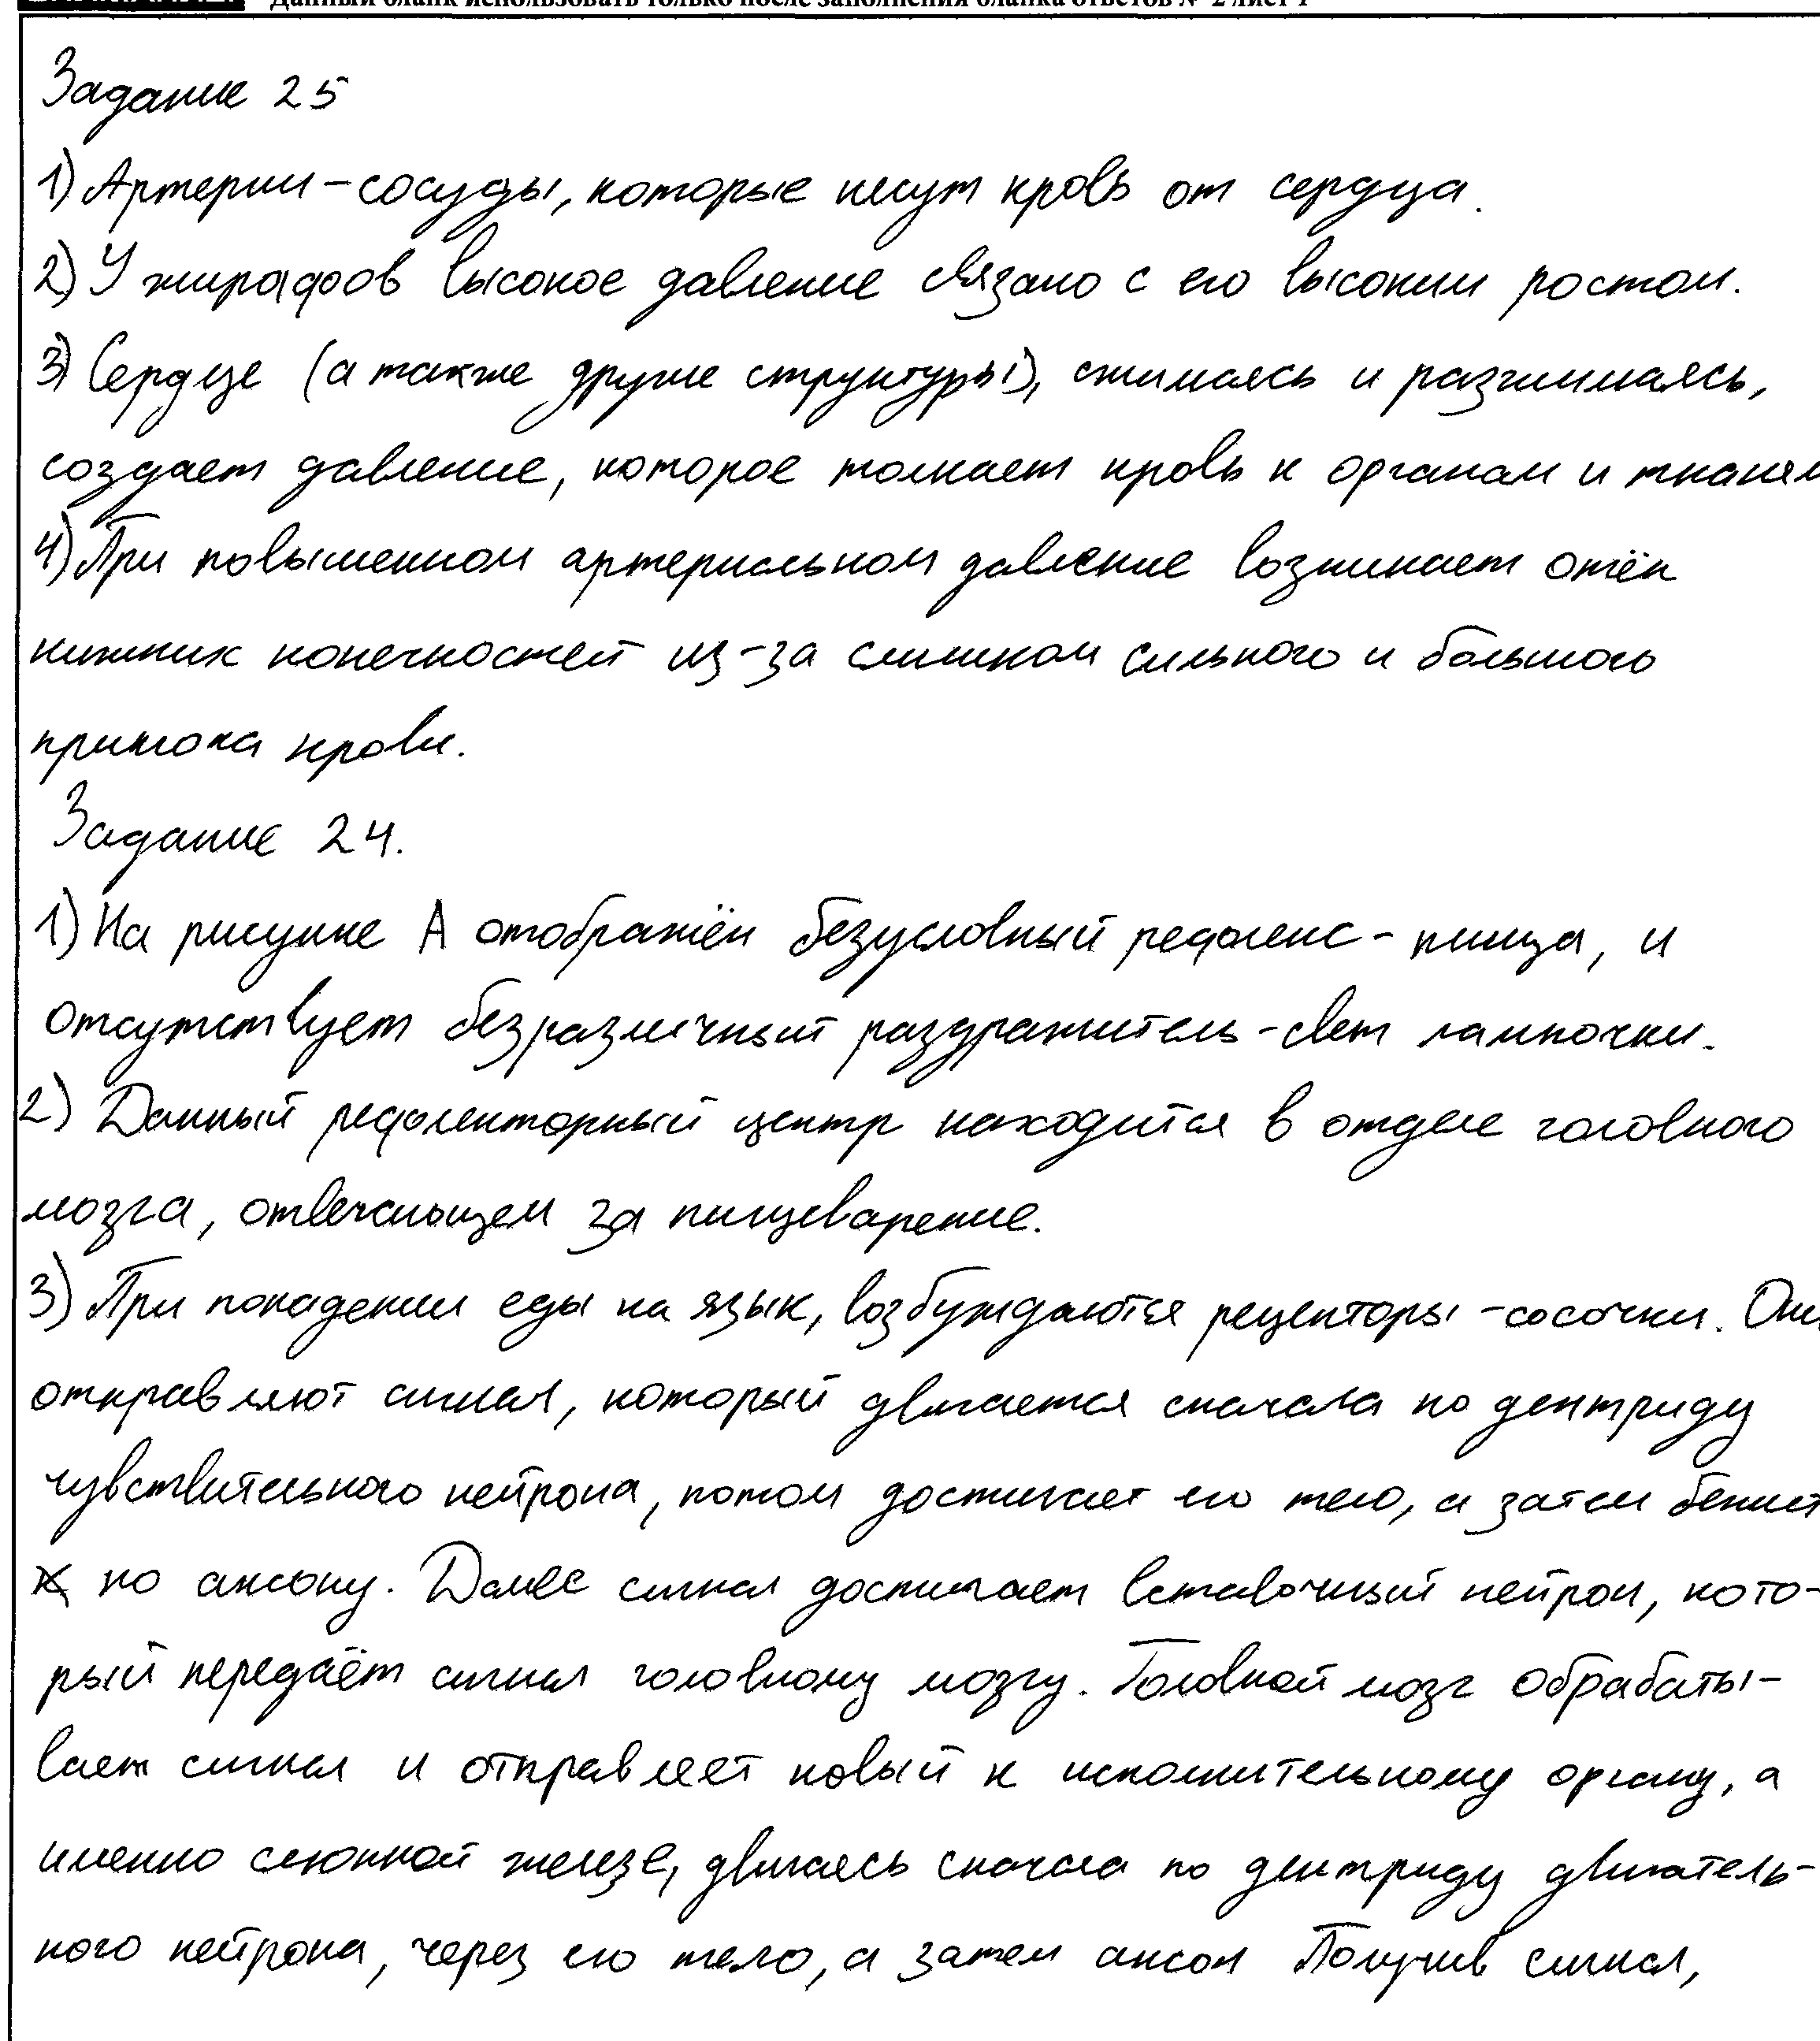 Данный бланк использовать только после заполнения бланка ответов № 2 лист 1
Задание 25
1) Артерии – сосуды, которые несут кровь от сердца.
2) У жирафов высокое давление связано с его высоким ростом.
3) Сердце (а также другие структуры), сжимаясь и разжимаясь,
создает давление, которое толкает кровь к органам и тканям
4) При повышенном артериальном давление возникает отёк
нижник конечностей из-за слишком сильного и большого
притока крови.
Задание 24.
1) На рисунке А отображён безусловный рефлекс – пища, и
отсутствует безразличный раздражитель – свет лампочки.
2) Данный рефлекторный центр находится в отделе головного
мозга, отвечающем за пищеварение.
3) При попадении еды на язык, возбуждаются рецепторы – сосочки. Они
отправляют сигнал, который двигается сначала по дентриду
чувствительного нейрона, потом достигает его тело, а затем бежит
по аксону. Далее сигнал достигает вставочный нейрон, кото-
рый передаёт сигнал головному мозгу. Головной мозг обрабаты-
вает сигнал и отправляет новый к исполнительному органу, а
именно слюнной железе, двигаясь сначала по дентриду двигатель-
ного нейрона, через его тело, а затем аксон Получив сигнал,